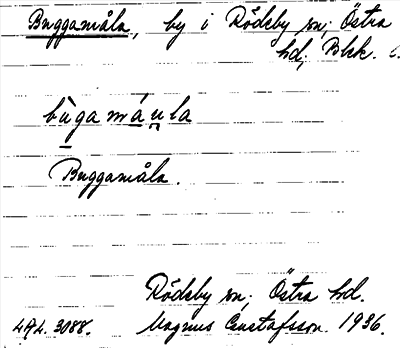 Buggamåla, by i Rödeby sn; Östra
hd; Blek. l.
bùgamáu̯la
Buggamåla.
Rödeby sn; Östra hd.
LAL. 3088. Magnus Gustafsson. 1936.